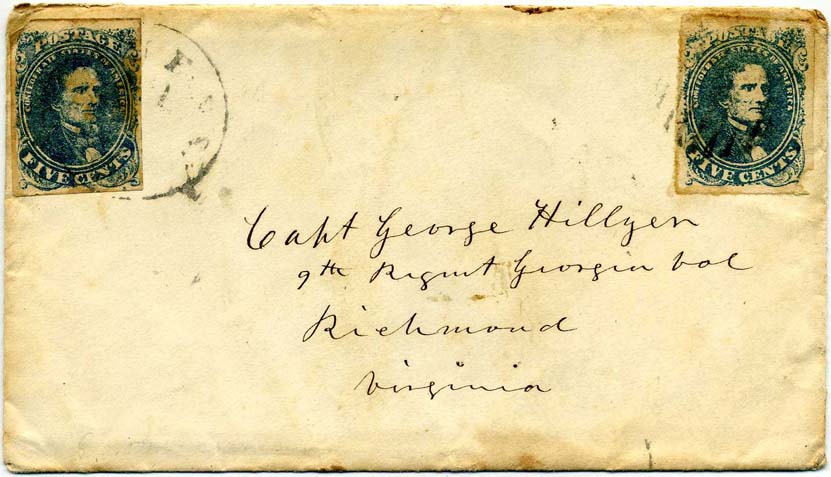 POSTAGE
CONFEDERATE STATES OF AMERICA
FIVE CENTS
POSTAGE
CONFEDERATE STATES OF AMERICA
FIVE CENTS
Capt George Hillyer
9th Regmt Georgia Vol
Richmond
Virginia